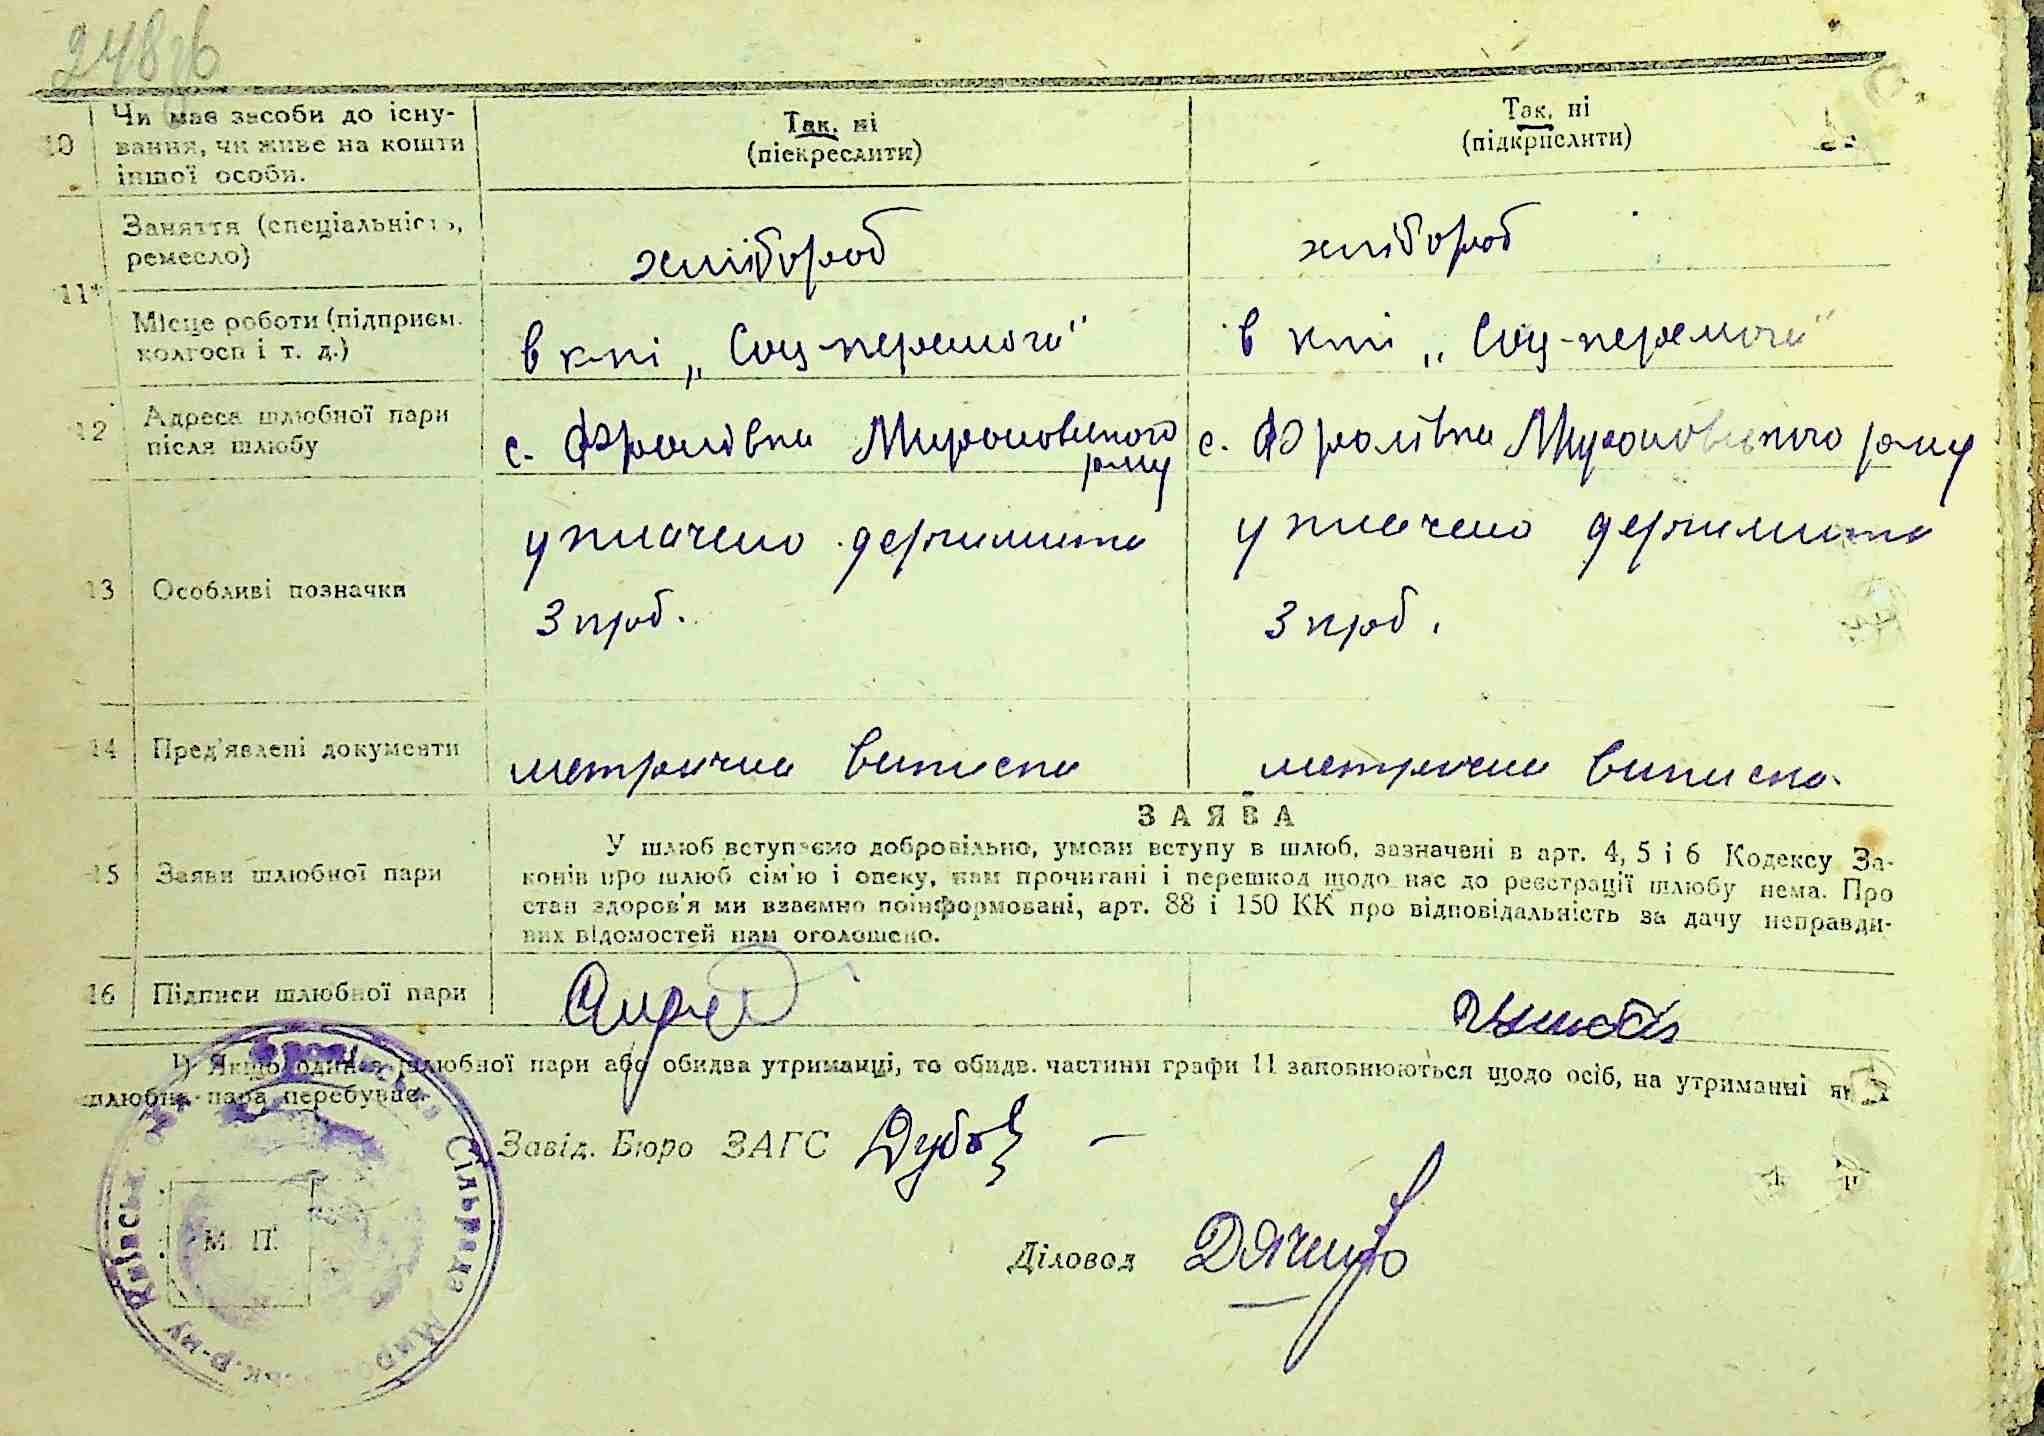 248 зв
10
Чи має засоби до існу-
вання, чи живе на кошти
іншої особи.
Так, ні
(піекреслити)
Так, ні
(підкрислити)
11*
Заняття (спеціальність,
ремесло)
хлібороб
хлібороб
Місце роботи (підприєм.
колгосп і т. д.)
в к-пі „Соц-перемоги"
в к-пі „Соц-перемоги"
12
Адреса шлюбної пари
після шлюбу
с. Фролівка Мироновського
р-ну
с. Фролівка Мироновського р-ну
13
Особливі позначки
уплачено держмита
3 крб.
уплачено держмита
3 крб.
14
Пред'явлені документи
метрична виписка
метрична виписка
15
Заяви шлюбної пари
ЗАЯВА
У шлюб вступаємо добровільно, умови вступу в шлюб, зазначені в арт. 4, 5 і 6 Кодексу За-
конів про шлюб сім'ю і опеку, нам прочитані і перешкод щодо нас до реєстрації шлюбу нема. Про
стан здоров'я ми взаємно поінформовані, арт. 88 і 150 КК про відповідальність за дачу неправди-
вих відомостей нам оголошено.
16
Підписи шлюбної пари
¹) Якщо один із шлюбної пари або обидва утриманці, то обидв. частини графи 11 заповнюються щодо осіб, на утриманні як
шлюбна пара перебуває.
Завід. Бюро ЗАГС
Діловод Дяченко
М. П.
Сільрада Миро к. р-ну Київськ